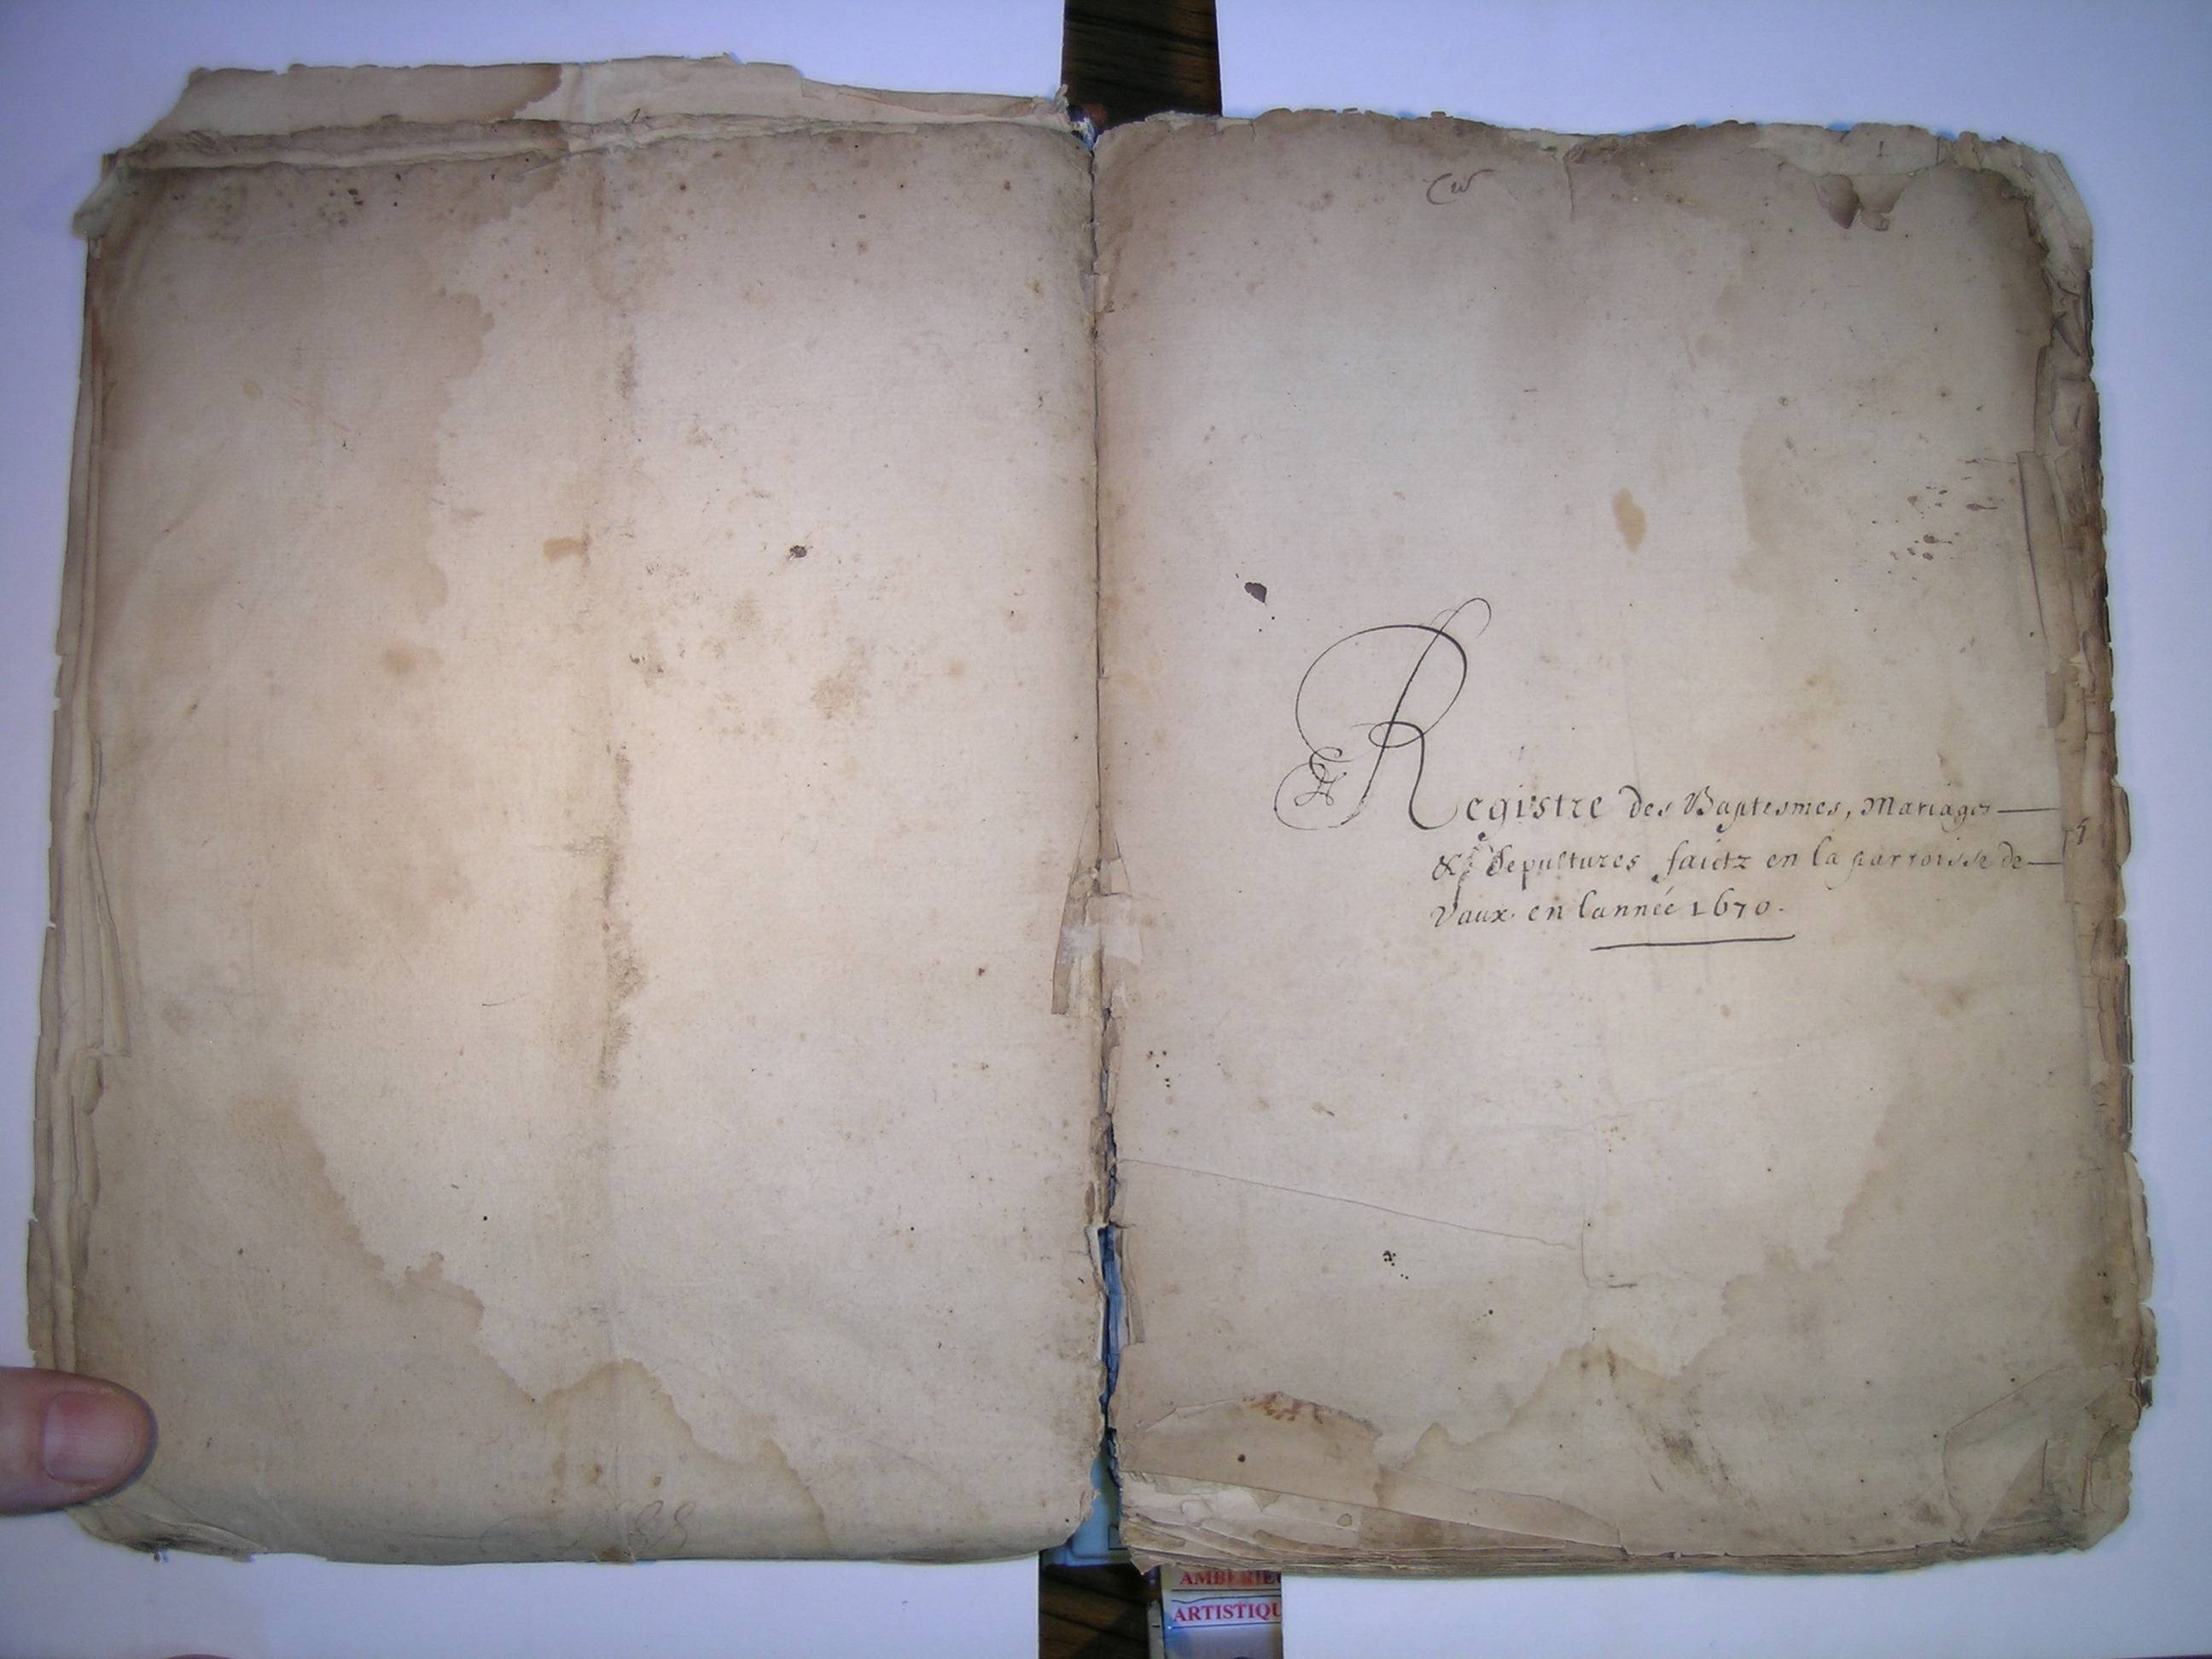 Registre des Baptesmes, Mariages
& Sepultures faictz en la parroisse de
Vaux en lannée 1670.
AMBERIEU
ARTISTIQU